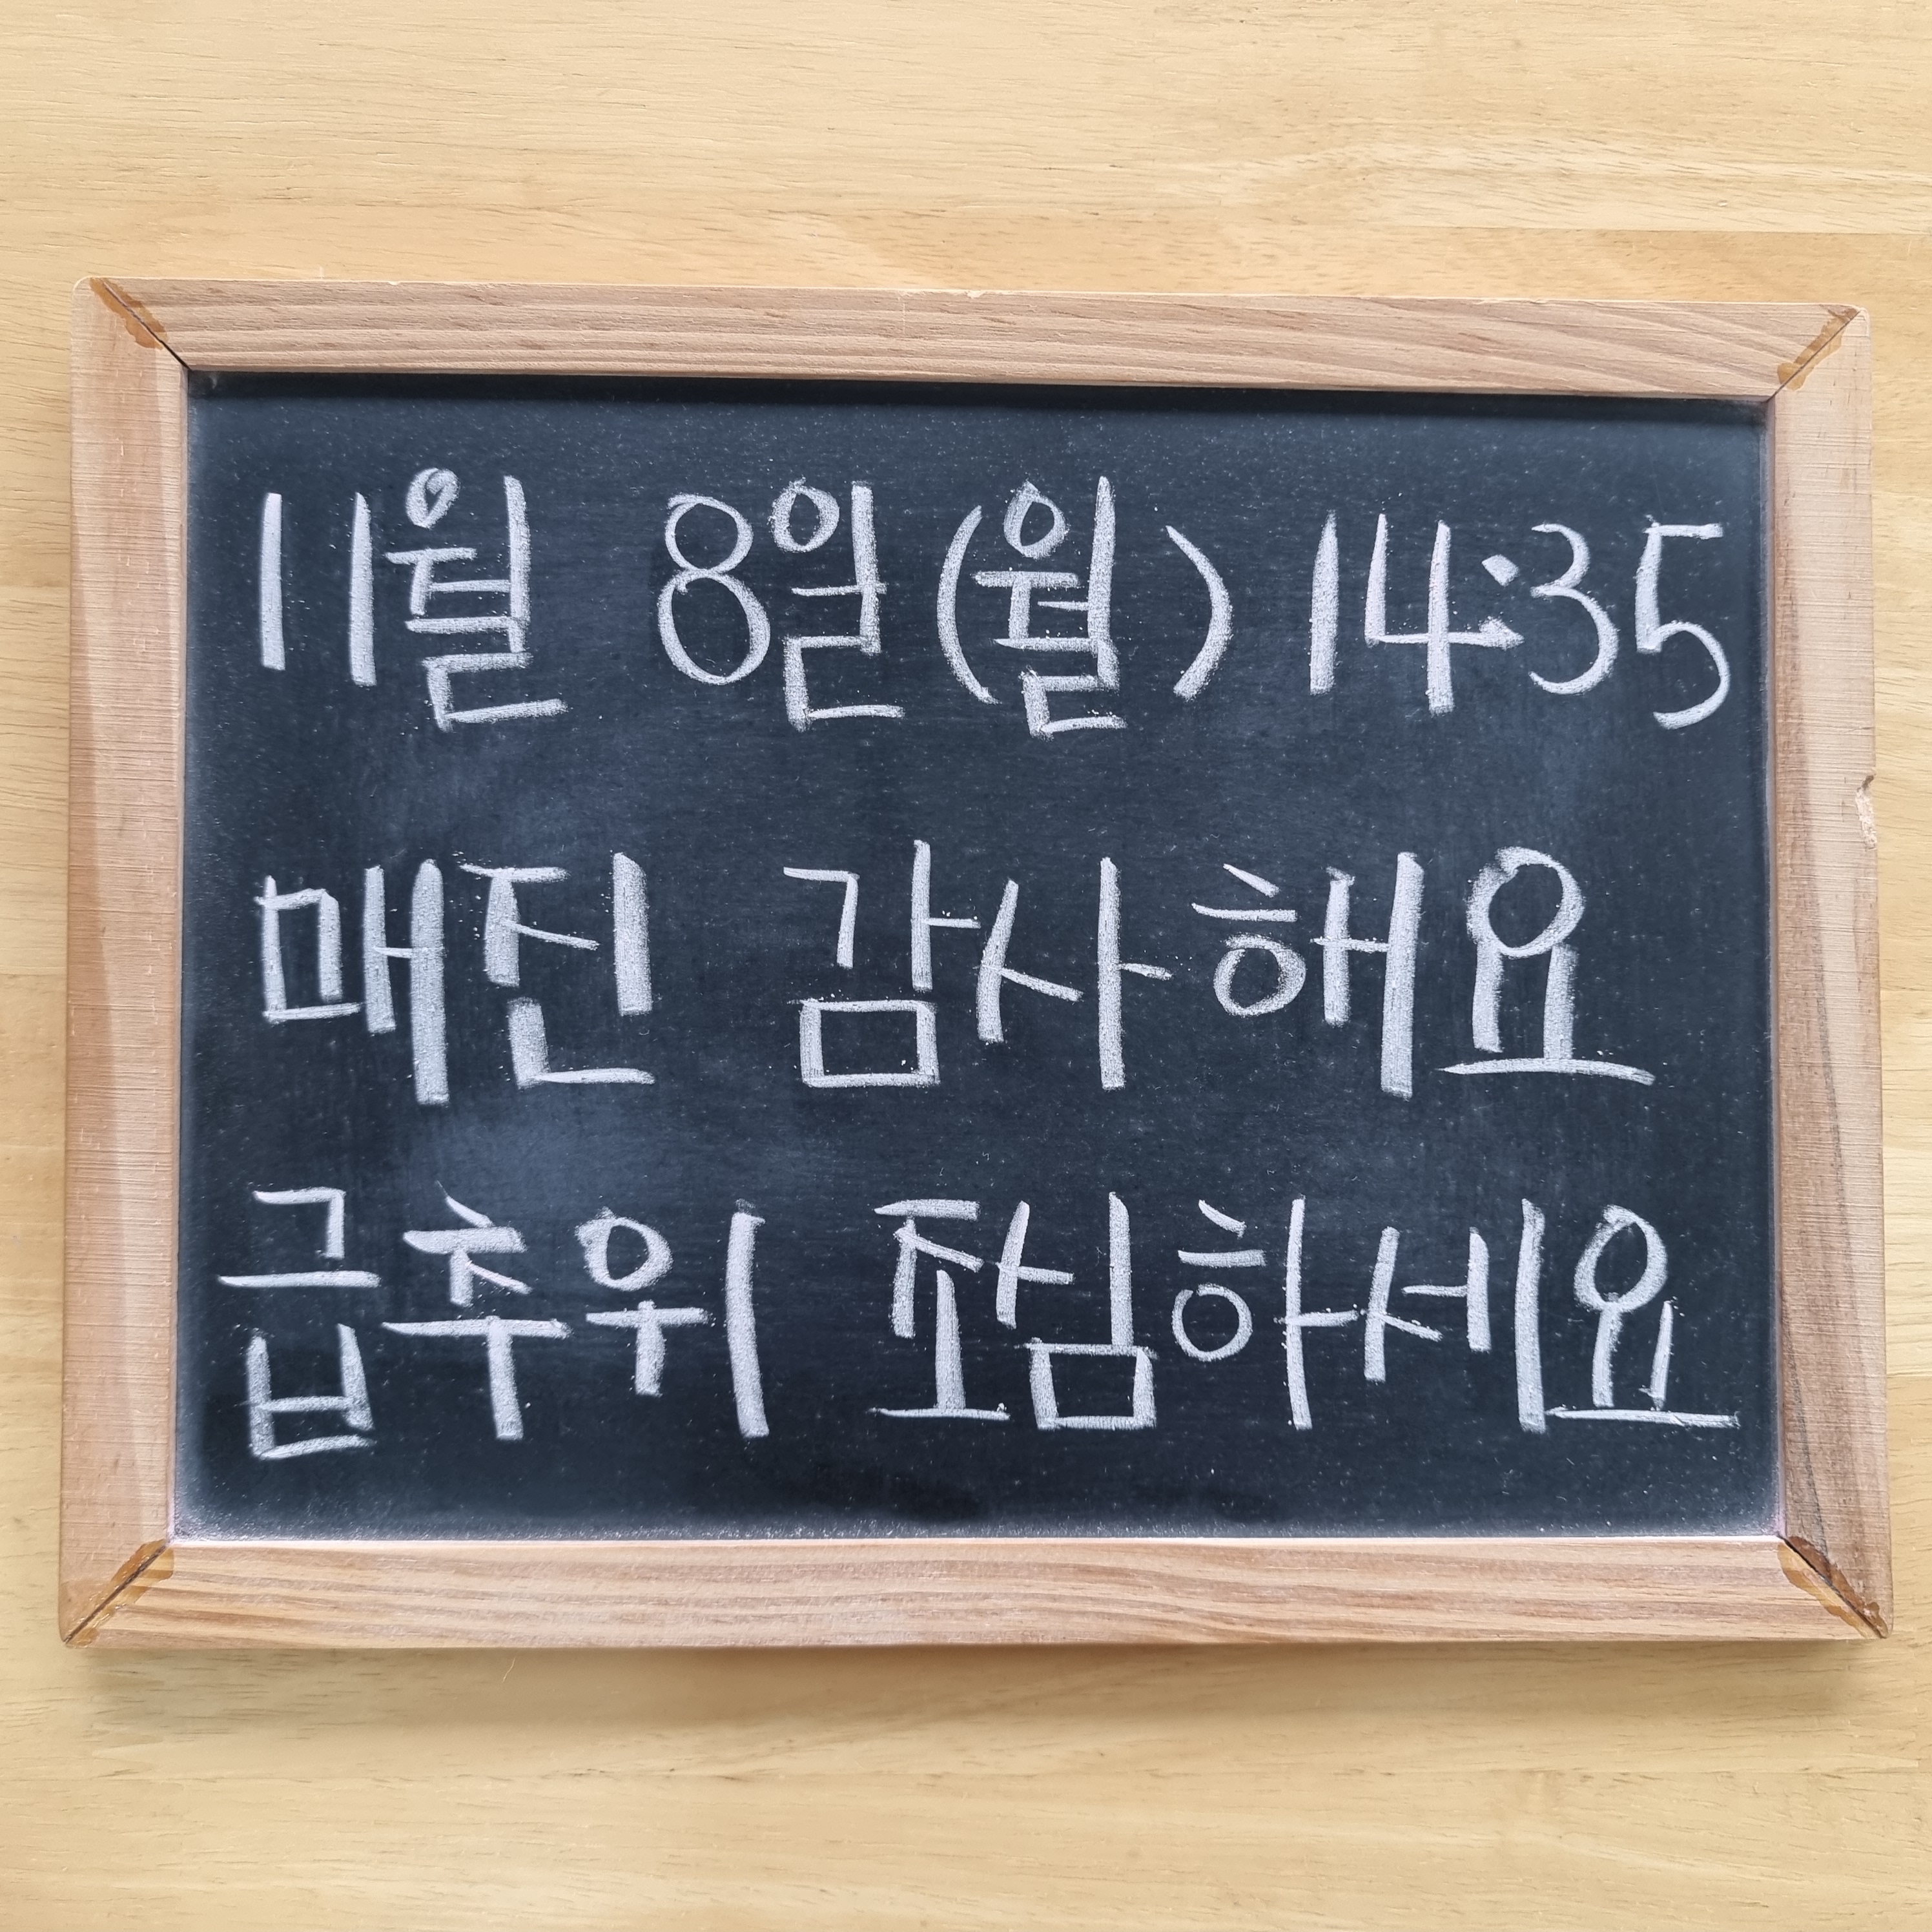 11월 8일(월) 14:35
매진 감사해요
급추위 조심하세요